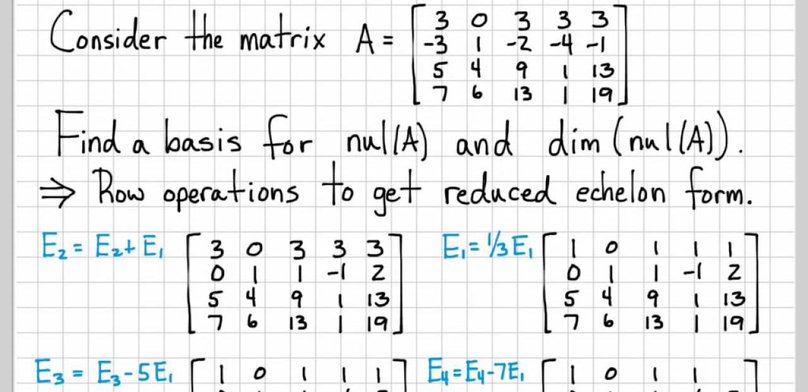 Consider the matrix A = [ 3 0 3 3 3
-3 1 -2 -4 -1
5 4 9 1 13
7 6 13 1 19 ]
Find a basis for nul(A) and dim(nul(A)).
⇒ Row operations to get reduced echelon form.
E₂ = E₂+E₁ [ 3 0 3 3 3
0 1 1 -1 2
5 4 9 1 13
7 6 13 1 19 ]
E₁ = 1/3 E₁ [ 1 0 1 1 1
0 1 1 -1 2
5 4 9 1 13
7 6 13 1 19 ]
E₃ = E₃-5E₁ [ 1 0 1 1 1 ]
E₄ = E₄-7E₁ [ 1 0 1 1